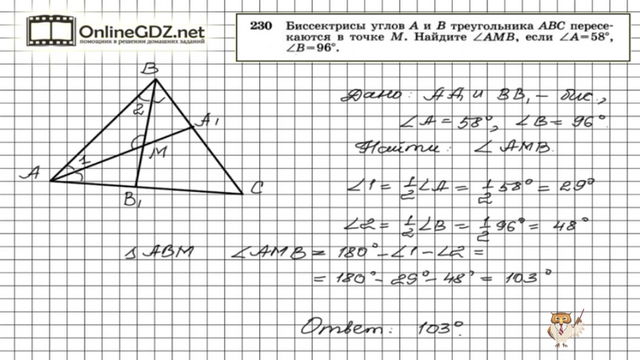 OnlineGDZ.net
помощники в решении домашних заданий
230 Биссектрисы углов A и B треугольника ABC пересе-
каются в точке M. Найдите ∠AMB, если ∠A=58°,
∠B=96°.
Дано: AA₁ и BB₁ – бис.,
∠A = 58°, ∠B = 96°
Найти: ∠AMB.
B
2
A₁
1
M
A
B₁
C
∠1 = 1/2 ∠A = 1/2 58° = 29°
∠2 = 1/2 ∠B = 1/2 96° = 48°
Δ ABM ∠AMB = 180° – ∠1 – ∠2 =
= 180° – 29° – 48° = 103°
Ответ: 103°.